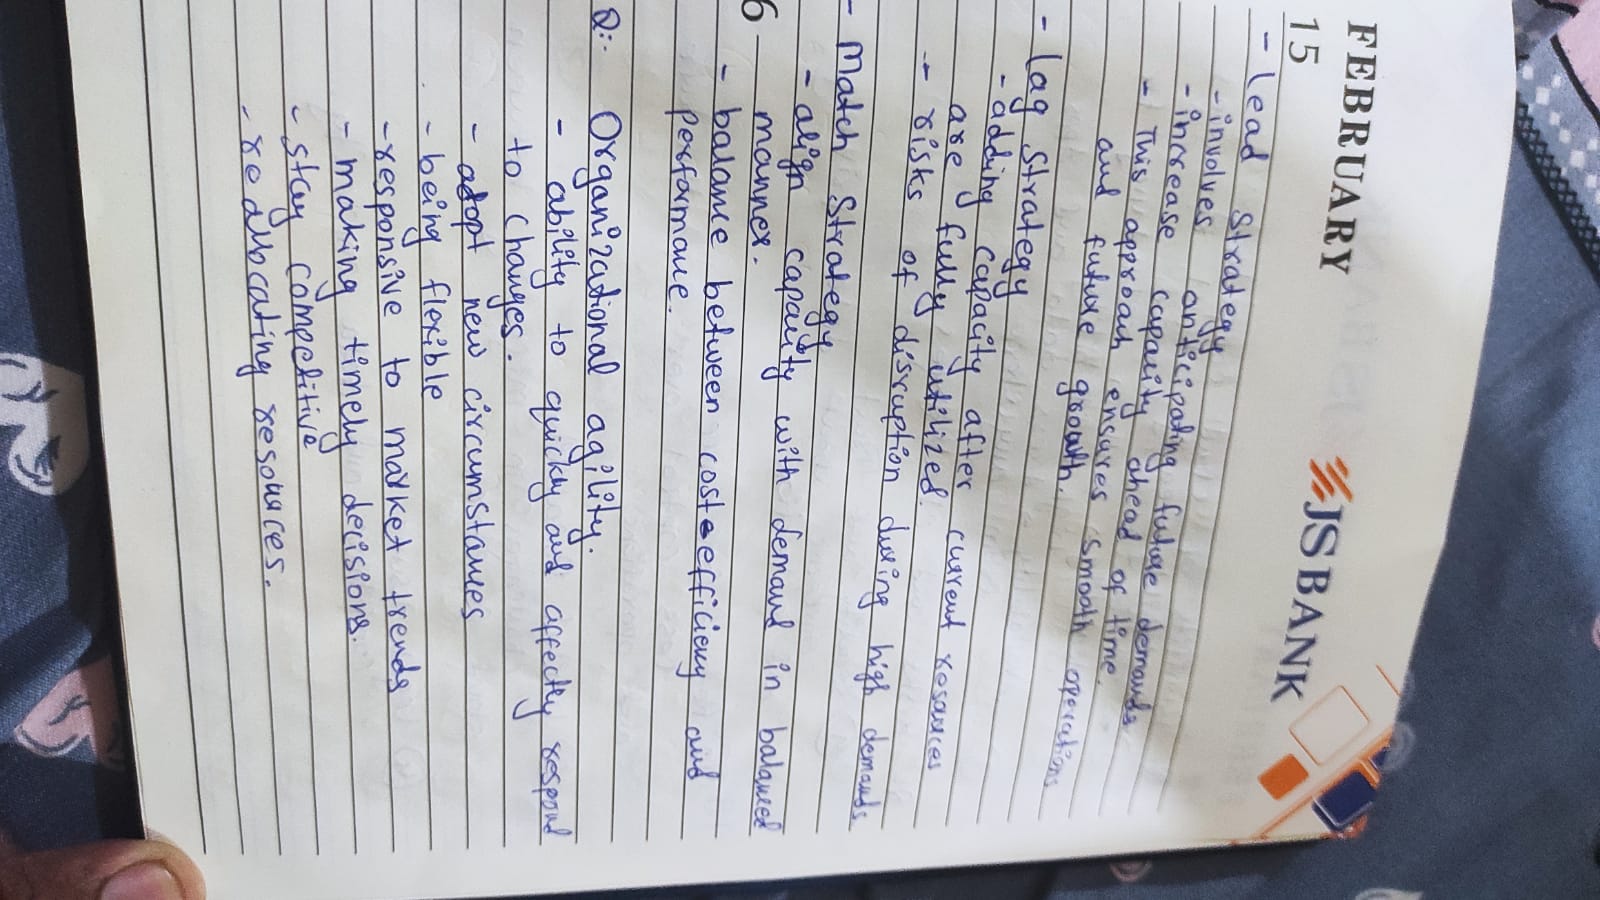 FEBRUARY
JS BANK
15
- Lead Strategy
- involves anticipating future demands
- increase capacity ahead of time.
- This approach ensures smooth operations
and future growth.
- Lag Strategy
- adding capacity after current resources
are fully utilized.
- risks of disruption during high demands
- Match Strategy
- align capacity with demand in balanced
6
manner.
- balance between cost-efficiency and
performance.
Q:- Organizational agility.
- ability to quickly and affectly respond
to changes.
- adopt new circumstances
- being flexible
- responsive to market trends
- making timely decisions.
- stay competitive
- reallocating resources.